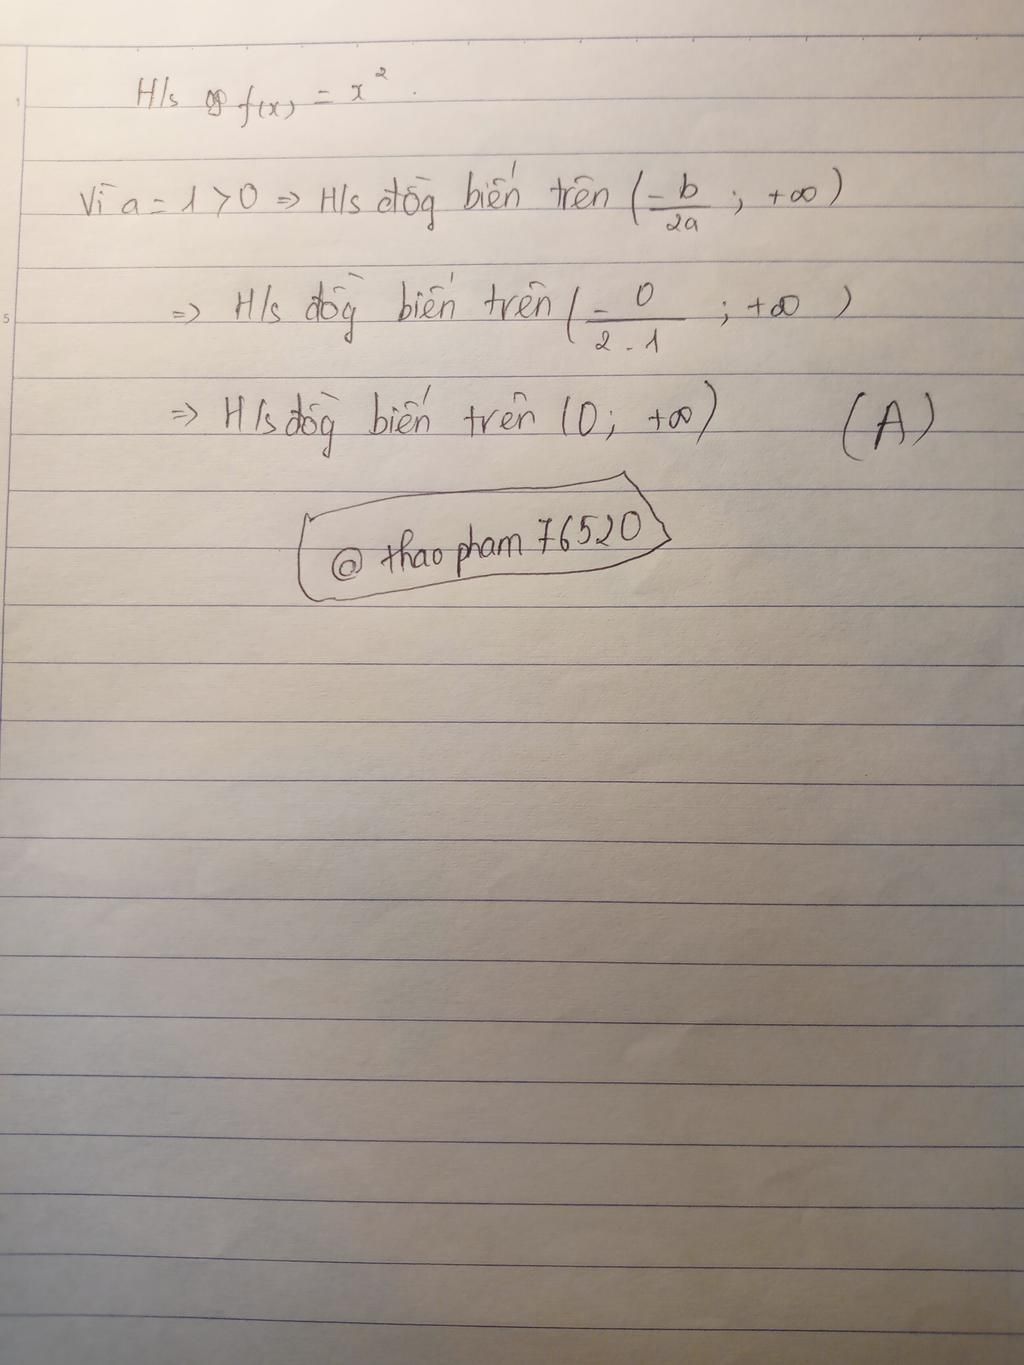 H/s f(x) = x²
Vì a = 1 > 0 => H/s đồg biến trên (-b/2a ; +∞)
=> H/s đồg biến trên (-0/2.1 ; +∞)
=> H/s đồg biến trên (0; +∞) (A)
@ thao pham 76520